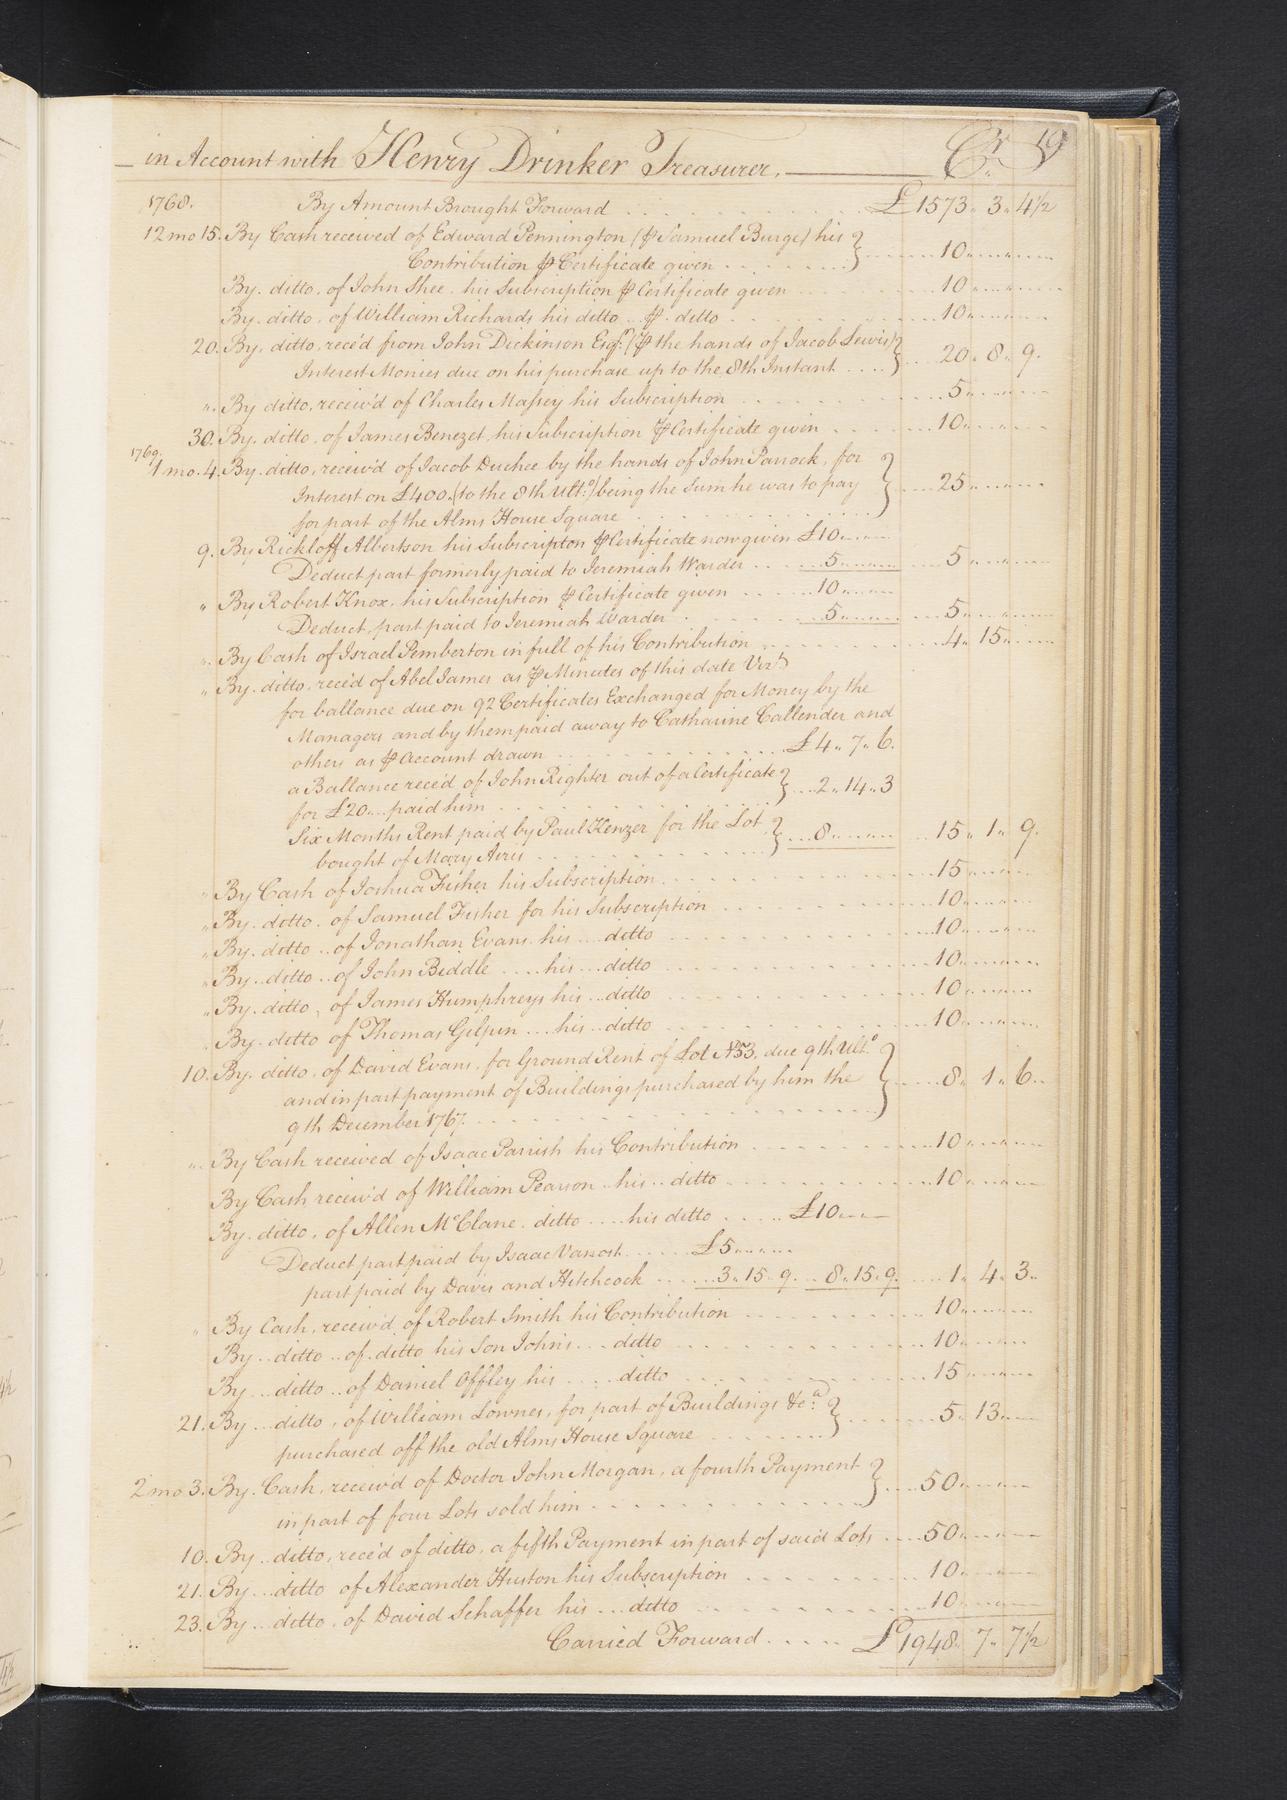 in Account with Henry Drinker Treasurer. Cr. 19
1768. By Amount Brought Forward £1573.. 3.. 4½
12 mo 15. By Cash received of Edward Pennington (⅌ Samuel Burge) his
Contribution ⅌ Certificate given 10
By. ditto. of John Shee. his Subscription ⅌ Certificate given 10
By. ditto. of William Richards his ditto ⅌ ditto 10
20. By. ditto. rece'd from John Dickinson Esqr. (⅌ the hands of Jacob Lewis)
Interest Monies due on his purchase up to the 8th Instant 20.. 8.. 9.
" By ditto, receiv'd of Charles Massey his Subscription 5
30. By. ditto. of James Benezet, his Subscription ⅌ Certificate given 10
1769.
1 mo. 4. By. ditto, receiv'd of Jacob Duchee by the hands of John Parrock, for
Interest on £400. (to the 8th Ulto.) being the Sum he was to pay 25
for part of the Alms House Square
9. By Rickloff Albertson his Subscripton ⅌ Certificate now given £10
Deduct part formerly paid to Jeremiah Warder 5 5
" By Robert Knox, his Subscription ⅌ Certificate given 10
Deduct, part paid to Jeremiah Warder 5 5
" By Cash of Israel Pemberton in full of his Contribution 4.. 15
" By. ditto, rece'd of Abel James as ⅌ Minutes of this date Vizt.
for ballance due on 92 Certificates Exchanged for Money by the
Managers and by them paid away to Catharine Callender and
others as ⅌ Account drawn £4.. 7.. 6.
a Ballance rece'd of John Righter out of a Certificate
for £20 paid him 2.. 14.. 3
Six Months Rent paid by Paul Kenzer for the Lot
bought of Mary Aris 8 15.. 1.. 9.
" By Cash of Joshua Fisher his Subscription 15
" By. ditto. of Samuel Fisher for his Subscription 10
" By. ditto. of Jonathan Evans his ditto 10
" By. ditto. of John Biddle his ditto 10
" By. ditto, of James Humphreys his ditto 10
" By. ditto of Thomas Gilpin his ditto 10
10. By. ditto. of David Evans, for Ground Rent of Lot No. 53, due 9th Ulto.
and in part payment of Buildings purchased by him the 8.. 1.. 6..
9th December 1767.
" By Cash received of Isaac Parrish his Contribution 10
By Cash receiv'd of William Pearson his ditto 10
By. ditto, of Allen McClane. ditto his ditto £10
Deduct part paid by Isaac Vanost £5
part paid by Davis and Hitchcock 3.. 15.. 9. 8.. 15.. 9. 1.. 4.. 3..
" By Cash, receiv'd of Robert Smith his Contribution 10
By ditto of ditto his Son John's ditto 10
By ditto of Daniel Offley his ditto 15
21. By ditto, of William Lownes, for part of Buildings &ca.
purchased off the old Alms House Square 5.. 13
2 mo 3. By. Cash, receiv'd of Doctor John Morgan, a fourth Payment
in part of four Lots sold him 50
10. By ditto, rece'd of ditto, a fifth Payment in part of said Lots 50
21. By ditto of Alexander Huston his Subscription 10
23. By ditto, of David Schaffer his ditto 10
Carried Forward £1948.. 7.. 7½